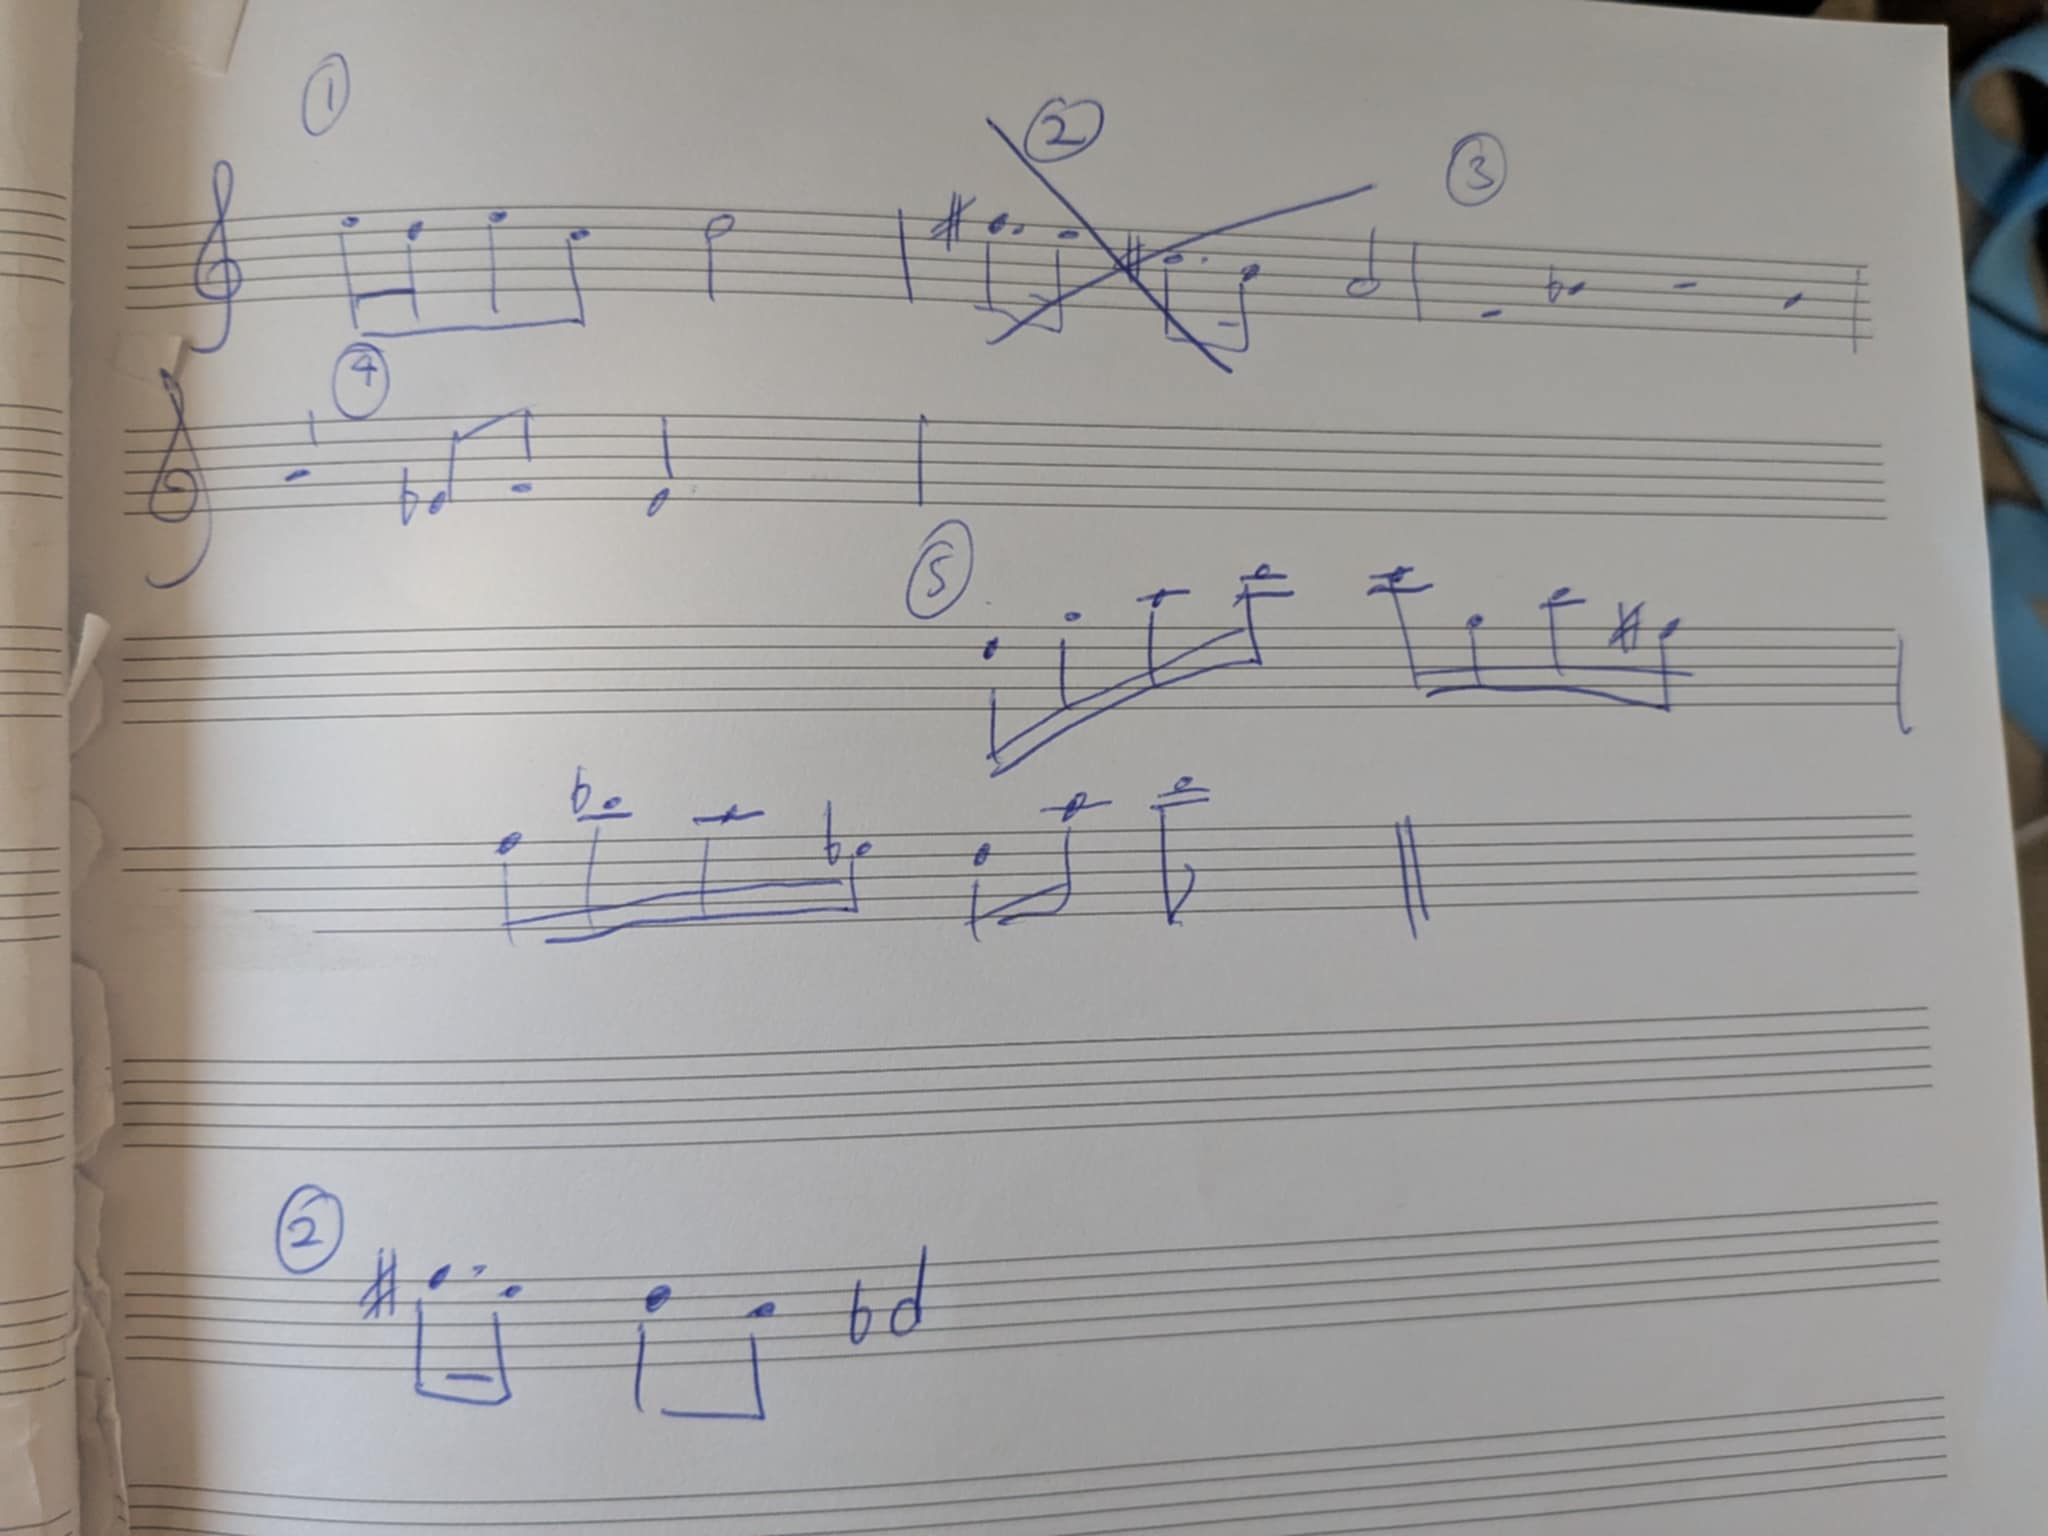 ① ② ③
④
⑤
②